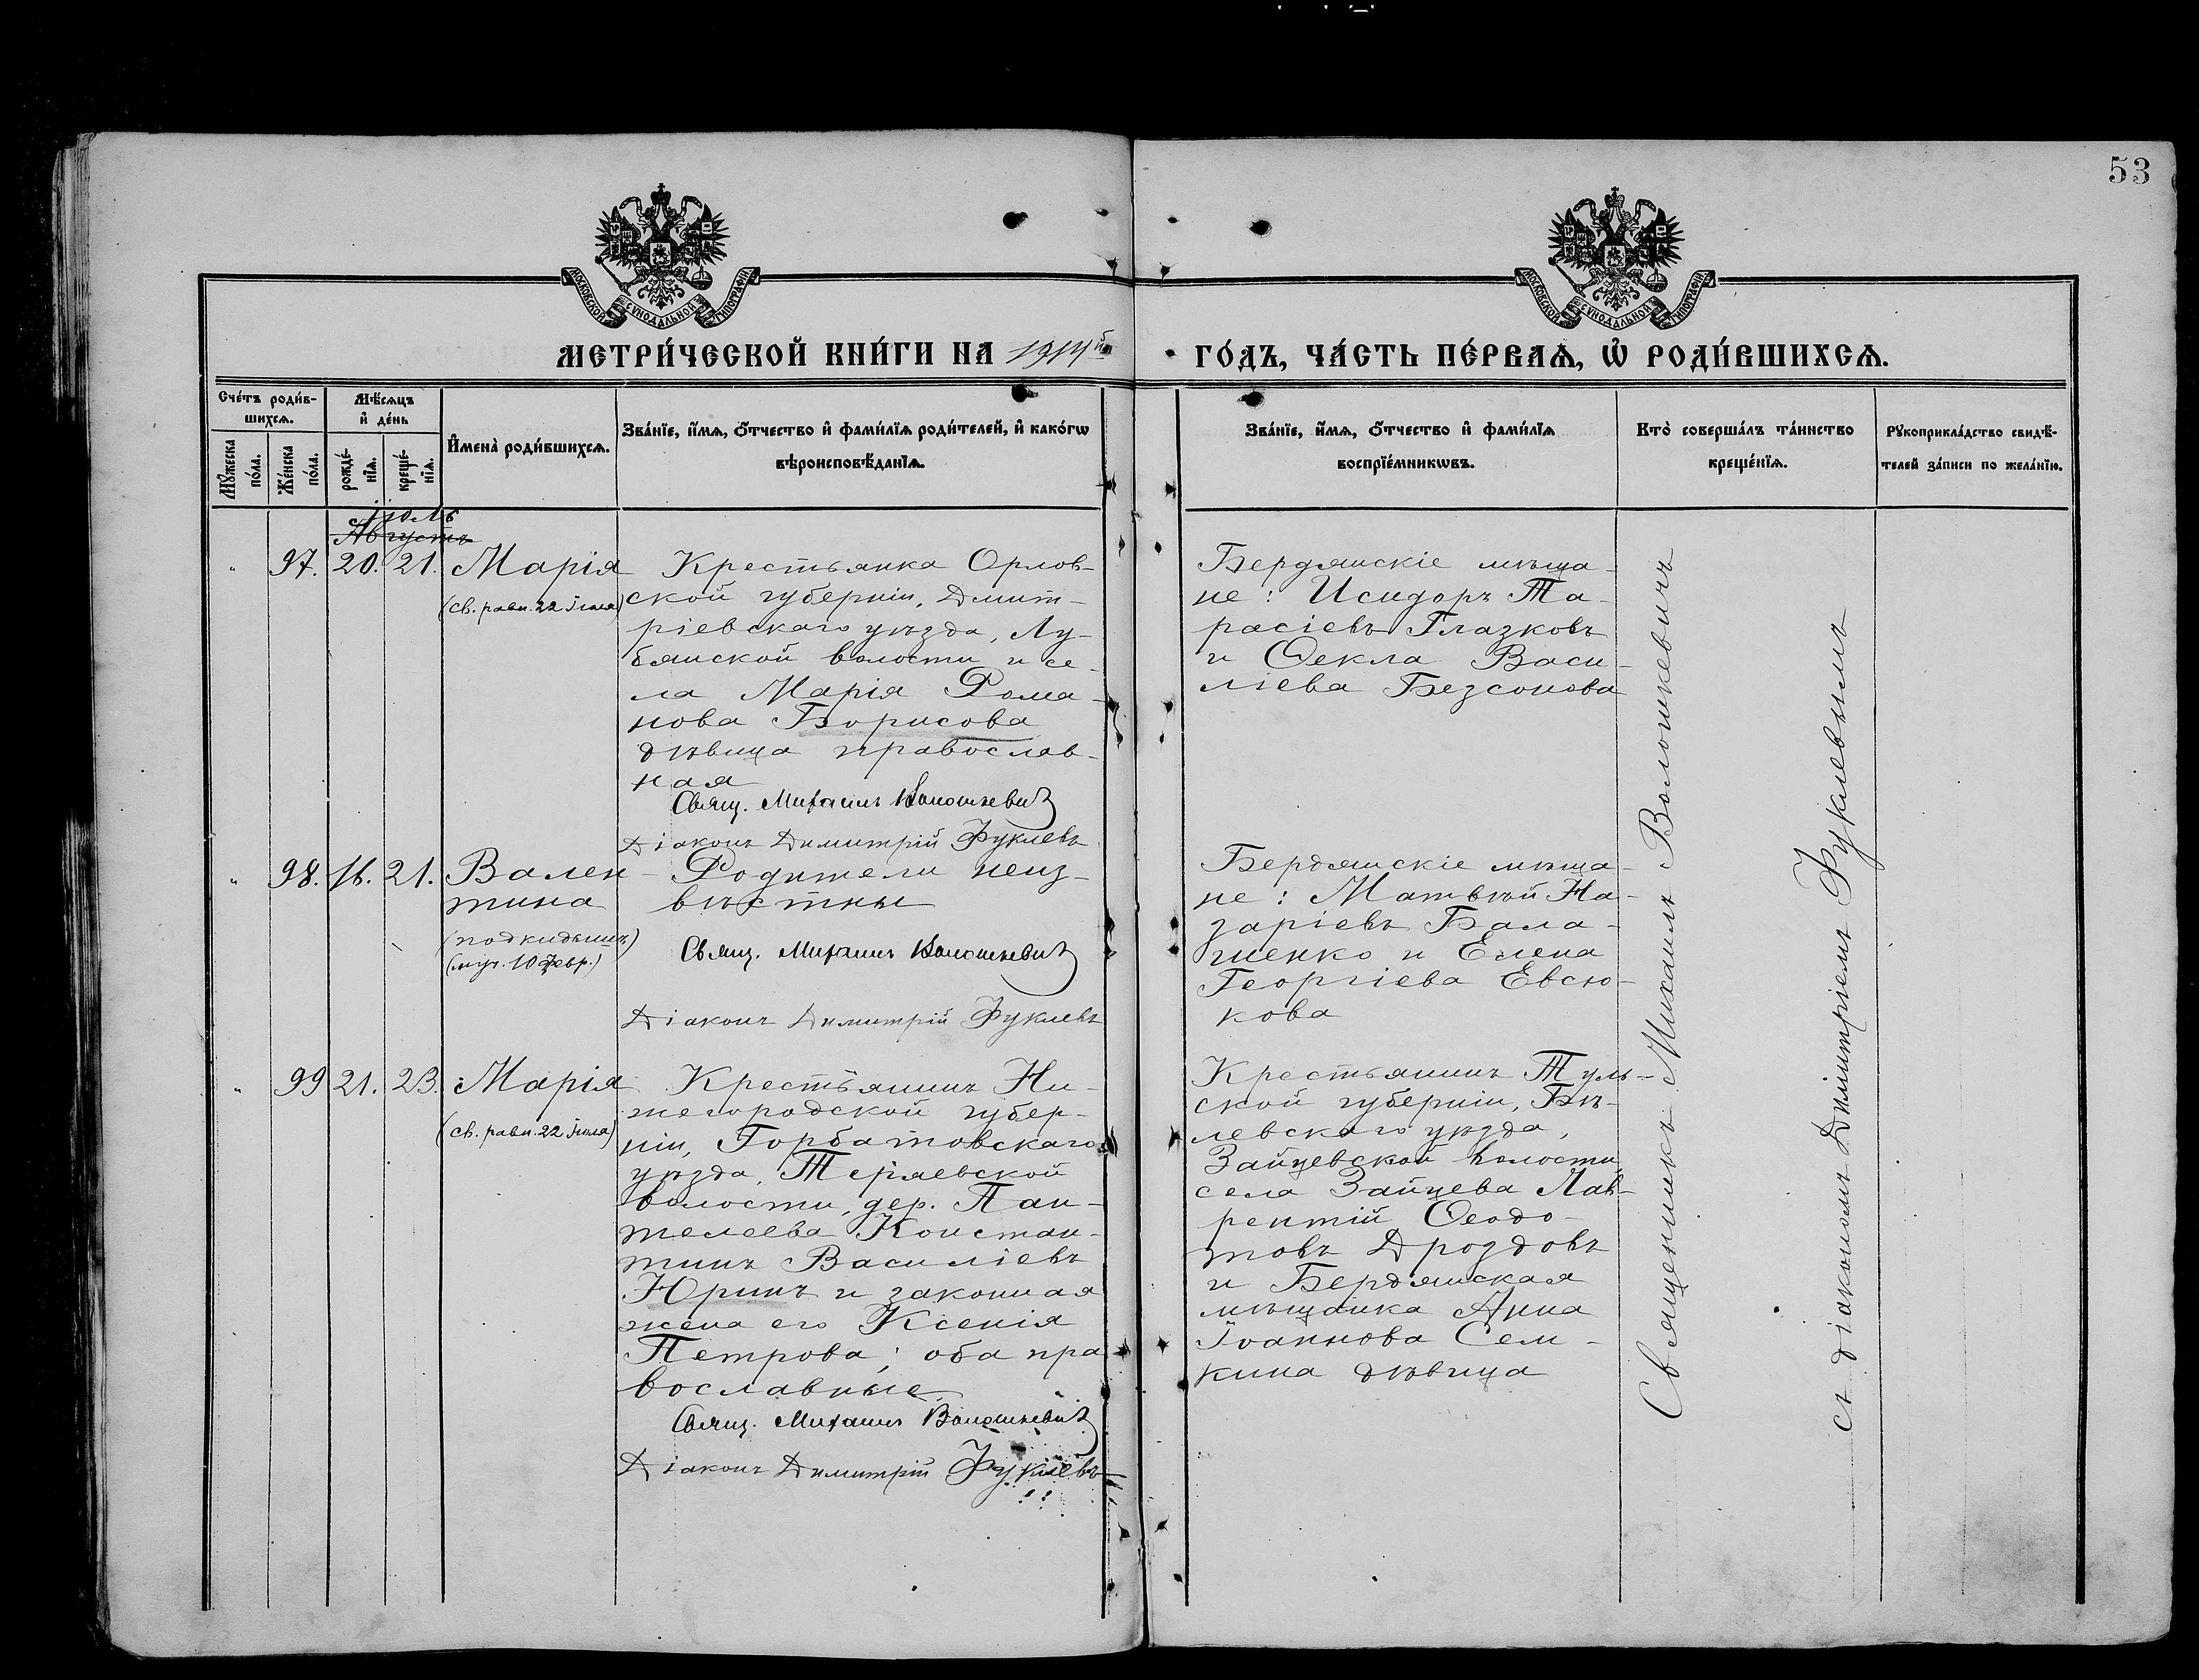 53
МОСКОВСКОЙ СѴНОДАЛЬНОЙ ТИПОГРАФІИ
МОСКОВСКОЙ СѴНОДАЛЬНОЙ ТИПОГРАФІИ
МЕТРИ́ЧЕСКОЙ КНИ́ГИ НА 1914й ГО́ДЪ, ЧА́СТЬ ПЕ́РВАѦ, Ѡ҆ РОДИ́ВШИХСѦ.
Сче́тъ роди́в-
шихсѧ.
Мꙋ́жеска по́ла.
Же́нска по́ла.
Мѣ́сѧцъ
и҆ де́нь
рожде́-
нїѧ.
креще́-
нїѧ.
И҆мена̀ роди́вшихсѧ.
Зва́нїе, и҆́мѧ, ѻ҆́тчество и҆ фами́лїѧ роди́телей, и҆ како́гѡ
вѣроисповѣ́данїѧ.
Зва́нїе, и҆́мѧ, ѻ҆́тчество и҆ фами́лїѧ
воспрїе́мникѡвъ.
Кто̀ соверша́лъ та́инство
креще́нїѧ.
Рꙋкоприкла́дство свидѣ́-
телей за́писи по жела́нїю.
Іюль
Августъ
97. 20. 21. Марія
(св. равн. 22 Іюля)
Крестьянка Орлов-
ской губерніи, Дмит-
ріевскаго уѣзда, Лу-
бянской волости и се-
ла Марія Рома-
нова Борисова
дѣвица православ-
ная
Свящ. Михаилъ Волошкевичъ
Діаконъ Димитрій Фуклевъ
Бердянскіе мѣща-
не: Исидоръ Та-
расіевъ Глазковъ
и Ѳекла Васи-
ліева Безсонова
98. 16. 21. Вален-
тина
(подкидышъ)
(муч. 10 февр.)
Родители неиз-
вѣстны
Свящ. Михаилъ Волошкевичъ
Діаконъ Димитрій Фуклевъ
Бердянскіе мѣща-
не: Матвѣй На-
заріевъ Бала-
гиенко и Елена
Георгіева Евсю-
кова
99 21. 23. Марія
(св. равн. 22 Іюля)
Крестьянинъ Ни-
жегородской губер-
ніи, Горбатовскаго
уѣзда, Теряевской
волости, дер. Пан-
телеева Констан-
тинъ Василіевъ
Юринъ и законная
жена его Ксенія
Петрова; оба пра
вославные
Свящ. Михаилъ Волошкевичъ
Діаконъ Димитрій Фуклевъ
Крестьянинъ Туль-
ской губерніи, Бѣ-
левскаго уѣзда,
Зайцевской волости,
села Зайцева Лав-
рентій Ѳеодо-
товъ Дроздовъ
и Бердянская
мѣщанка Анна
Іоаннова Сем-
кина дѣвица
Священникъ Михаилъ Волошкевичъ
съ діакономъ Димитріемъ Фуклевымъ